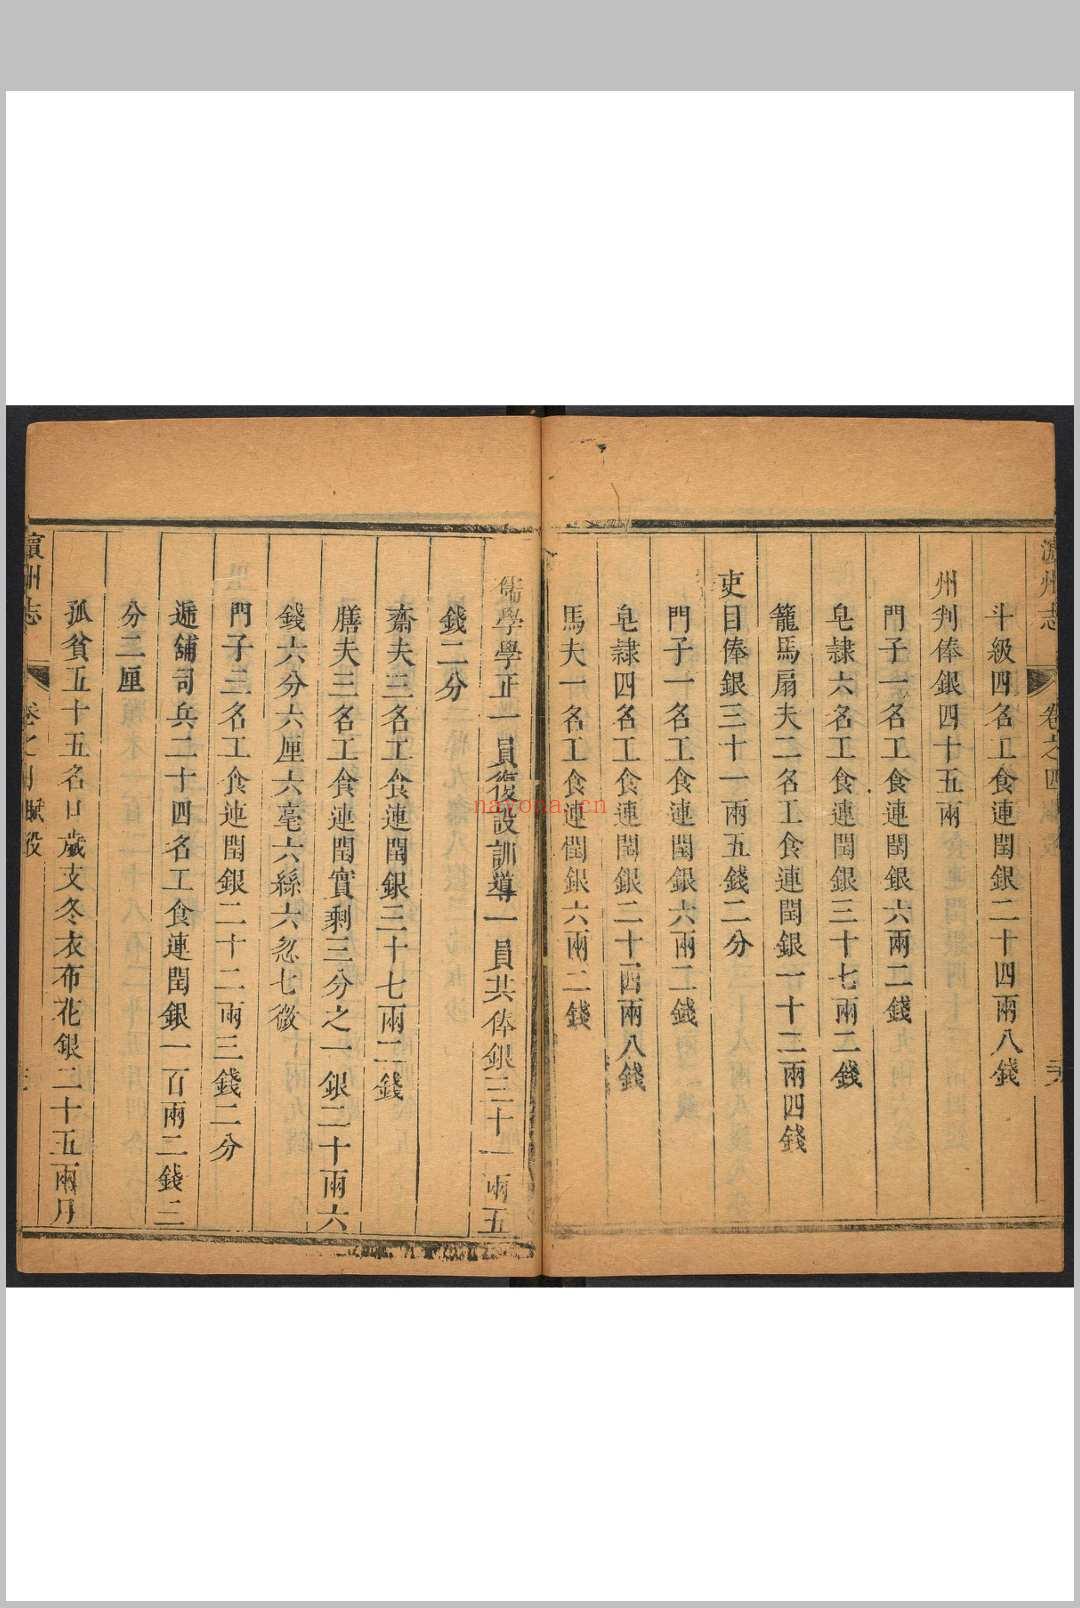 州志
卷之四
斗級四名工食連閏銀二十四兩八錢
州判俸銀四十五兩
門子一名工食連閏銀六兩二錢
皂隷六名工食連閏銀三十七兩二錢
籠馬扇夫二名工食連閏銀一十二兩四錢
吏目俸銀三十一兩五錢二分
門子一名工食連閏銀六兩二錢
皂隷四名工食連閏銀二十四兩八錢
馬夫一名工食連閏銀六兩二錢
儒學學正一員復設訓導一員共俸銀三十一兩五
錢二分
齋夫三名工食連閏銀三十七兩二錢
膳夫三名工食連閏實剩三分之一銀二十兩六
錢六分六厘六毫六絲六忽七微
門子三名工食連閏銀二十二兩三錢二分
遞舖司兵二十四名工食連閏銀一百兩二錢三
分三厘
孤貧五十五名口歲支冬衣布花銀二十五兩月
州志
卷之 賦役
nayona.cn